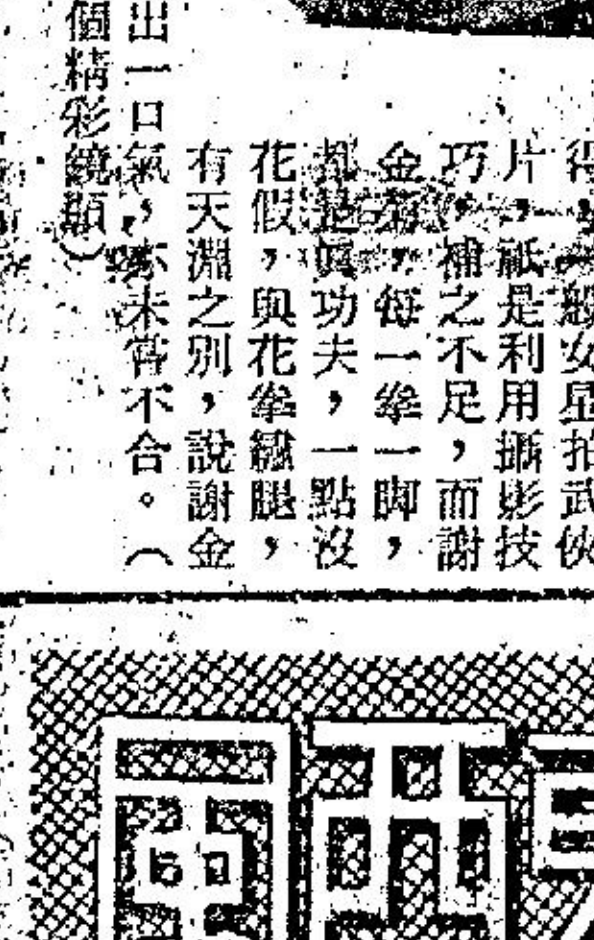 得，一般女星拍武俠
片，祇是利用攝影技
巧，補之不足，而謝
金菊，每一拳一脚，
都是眞功夫，一點沒
花假，與花拳繡腿，
有天淵之別，說謝金
出一口氣，亦未嘗不合。（
個精彩鏡頭）